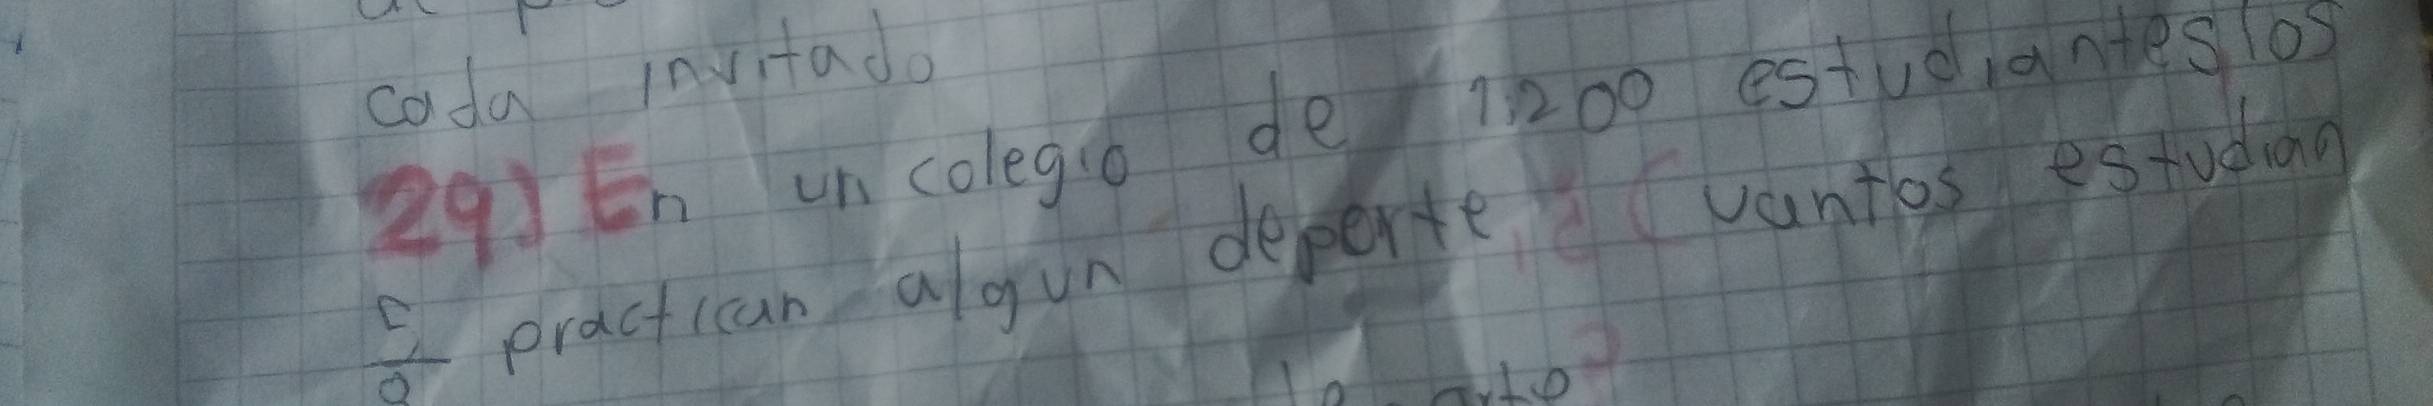 cada invitado
29) En un colegio de 1.200 estudiantes los
5/8 practican algun deporte ¿Cuantos estudian